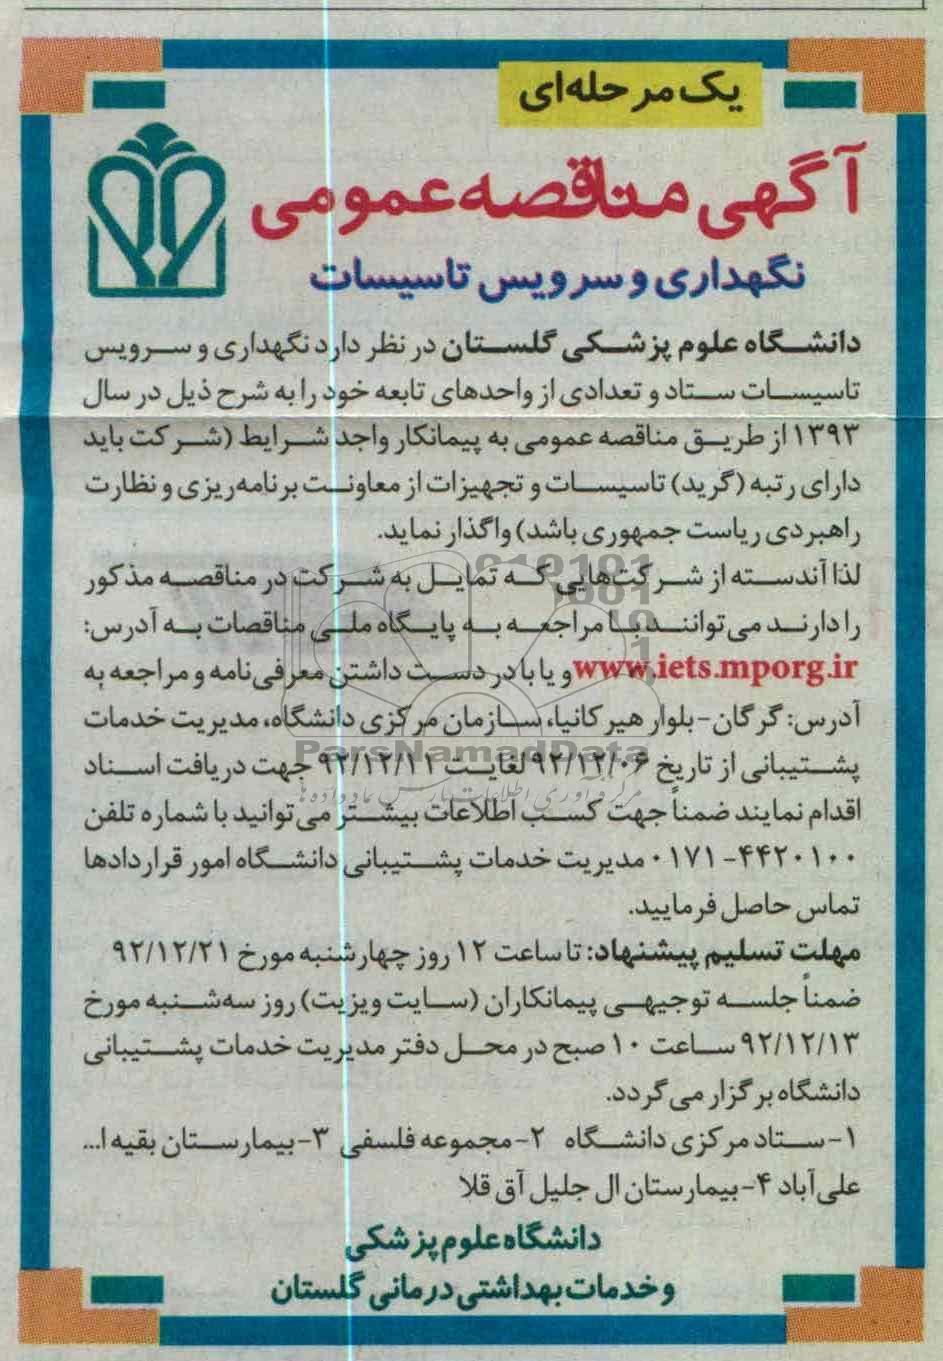 یک مرحله‌ای
آگهی مناقصه عمومی
نگهداری و سرویس تاسیسات
دانشگاه علوم پزشکی گلستان در نظر دارد نگهداری و سرویس
تاسیسات ستاد و تعدادی از واحدهای تابعه خود را به شرح ذیل در سال
۱۳۹۳ از طریق مناقصه عمومی به پیمانکار واجد شرایط (شرکت باید
دارای رتبه (گرید) تاسیسات و تجهیزات از معاونت برنامه‌ریزی و نظارت
راهبردی ریاست جمهوری باشد) واگذار نماید.
لذا آندسته از شرکت‌هایی که تمایل به شرکت در مناقصه مذکور
را دارند می‌توانند با مراجعه به پایگاه ملی مناقصات به آدرس:
www.iets.mporg.ir و یا با در دست داشتن معرفی‌نامه و مراجعه به
آدرس: گرگان-بلوار هیرکانیا، سازمان مرکزی دانشگاه، مدیریت خدمات
پشتیبانی از تاریخ ۹۲/۱۲/۰۶ لغایت ۹۲/۱۲/۱۱ جهت دریافت اسناد
اقدام نمایند ضمناً جهت کسب اطلاعات بیشتر می‌توانید با شماره تلفن
۰۱۷۱-۴۴۲۰۱۰۰ مدیریت خدمات پشتیبانی دانشگاه امور قراردادها
تماس حاصل فرمایید.
مهلت تسلیم پیشنهاد: تا ساعت ۱۲ روز چهارشنبه مورخ ۹۲/۱۲/۲۱
ضمناً جلسه توجیهی پیمانکاران (سایت ویزیت) روز سه‌شنبه مورخ
۹۲/۱۲/۱۳ ساعت ۱۰ صبح در محل دفتر مدیریت خدمات پشتیبانی
دانشگاه برگزار می‌گردد.
۱-ستاد مرکزی دانشگاه ۲-مجموعه فلسفی ۳-بیمارستان بقیه ا...
علی‌آباد ۴-بیمارستان ال جلیل آق قلا
دانشگاه علوم پزشکی
و خدمات بهداشتی درمانی گلستان
ParsNamadData